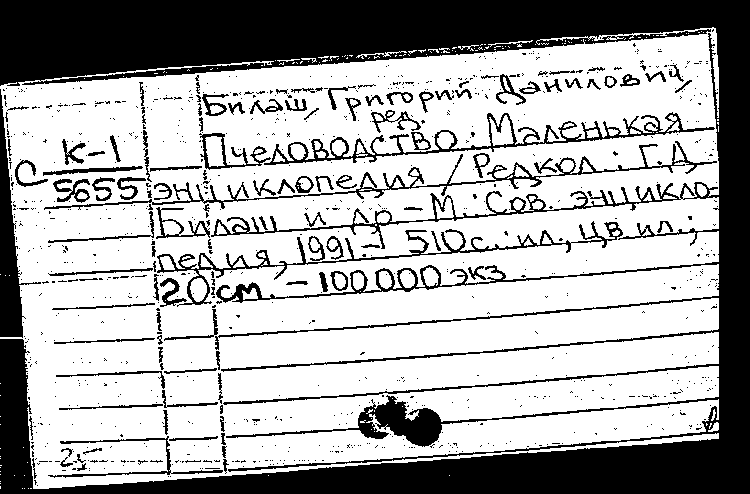 Билаш, Григорий Данилович,
ред.
С К-1
5655
Пчеловодство: Маленькая
энциклопедия / Редкол.: Г.Д
Билаш и др - М.: Сов. энцикло-
педия, 1991. - 510с.: ил., цв ил.;
20 см. - 100000 экз.
25